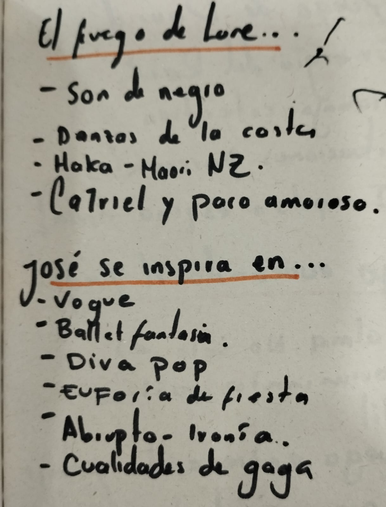 El fuego de Lore...
- Son de negro
- Danzas de la costa
- Haka - Maori NZ.
- Ca7riel y paco amoroso.
José se inspira en...
- Vogue
- Ballet fantasía.
- Diva pop
- Euforia de fiesta
- Abrupto - Ironía.
- Cualidades de gaga